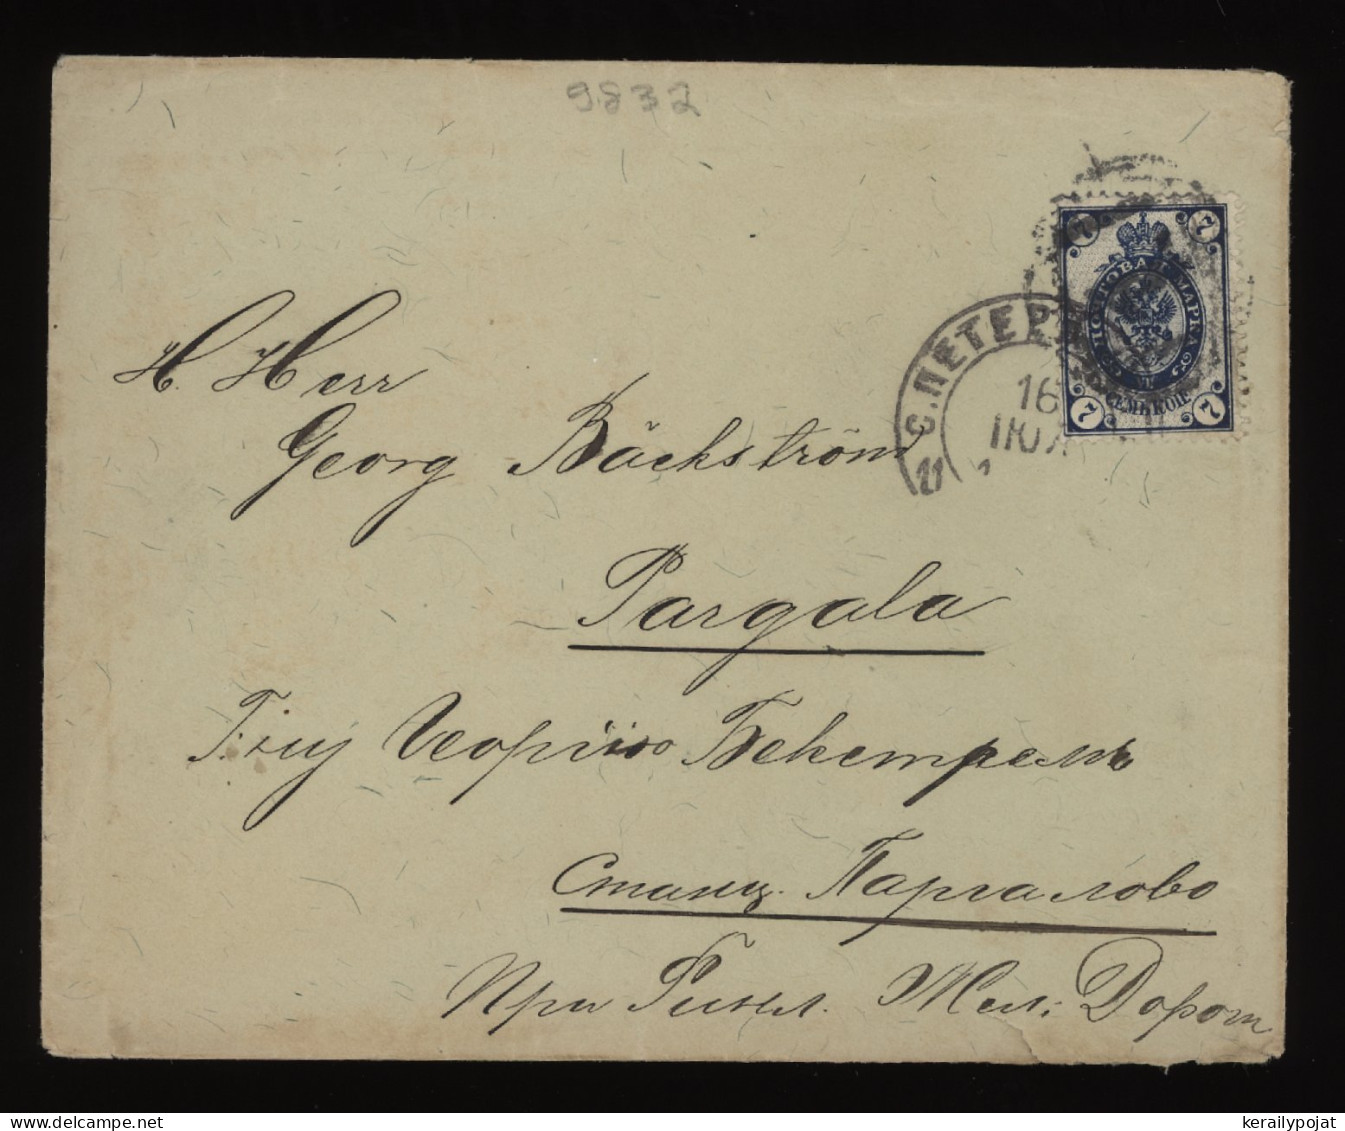 9832
7 7
ПОЧТОВАЯ МАРКА
СЕМЬ КОП.
7 7
С.ПЕТЕР
16
ІЮЛ
H. Herr
Georg Bäckström
Pargala
Г:ну Георгію Бекстремъ
Станц. Паргалово
При Финл. Жел: Дорог
kerailypojat